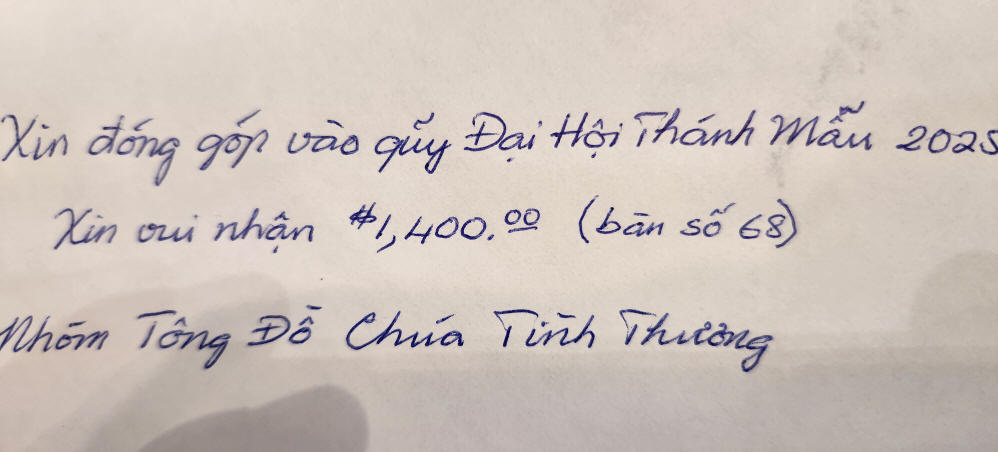 Xin đóng góp vào qũy Đại Hội Thánh Mẫu 2025
Xin vui nhận $1,400.00 (bàn số 68)
Nhóm Tông Đồ Chúa Tình Thương